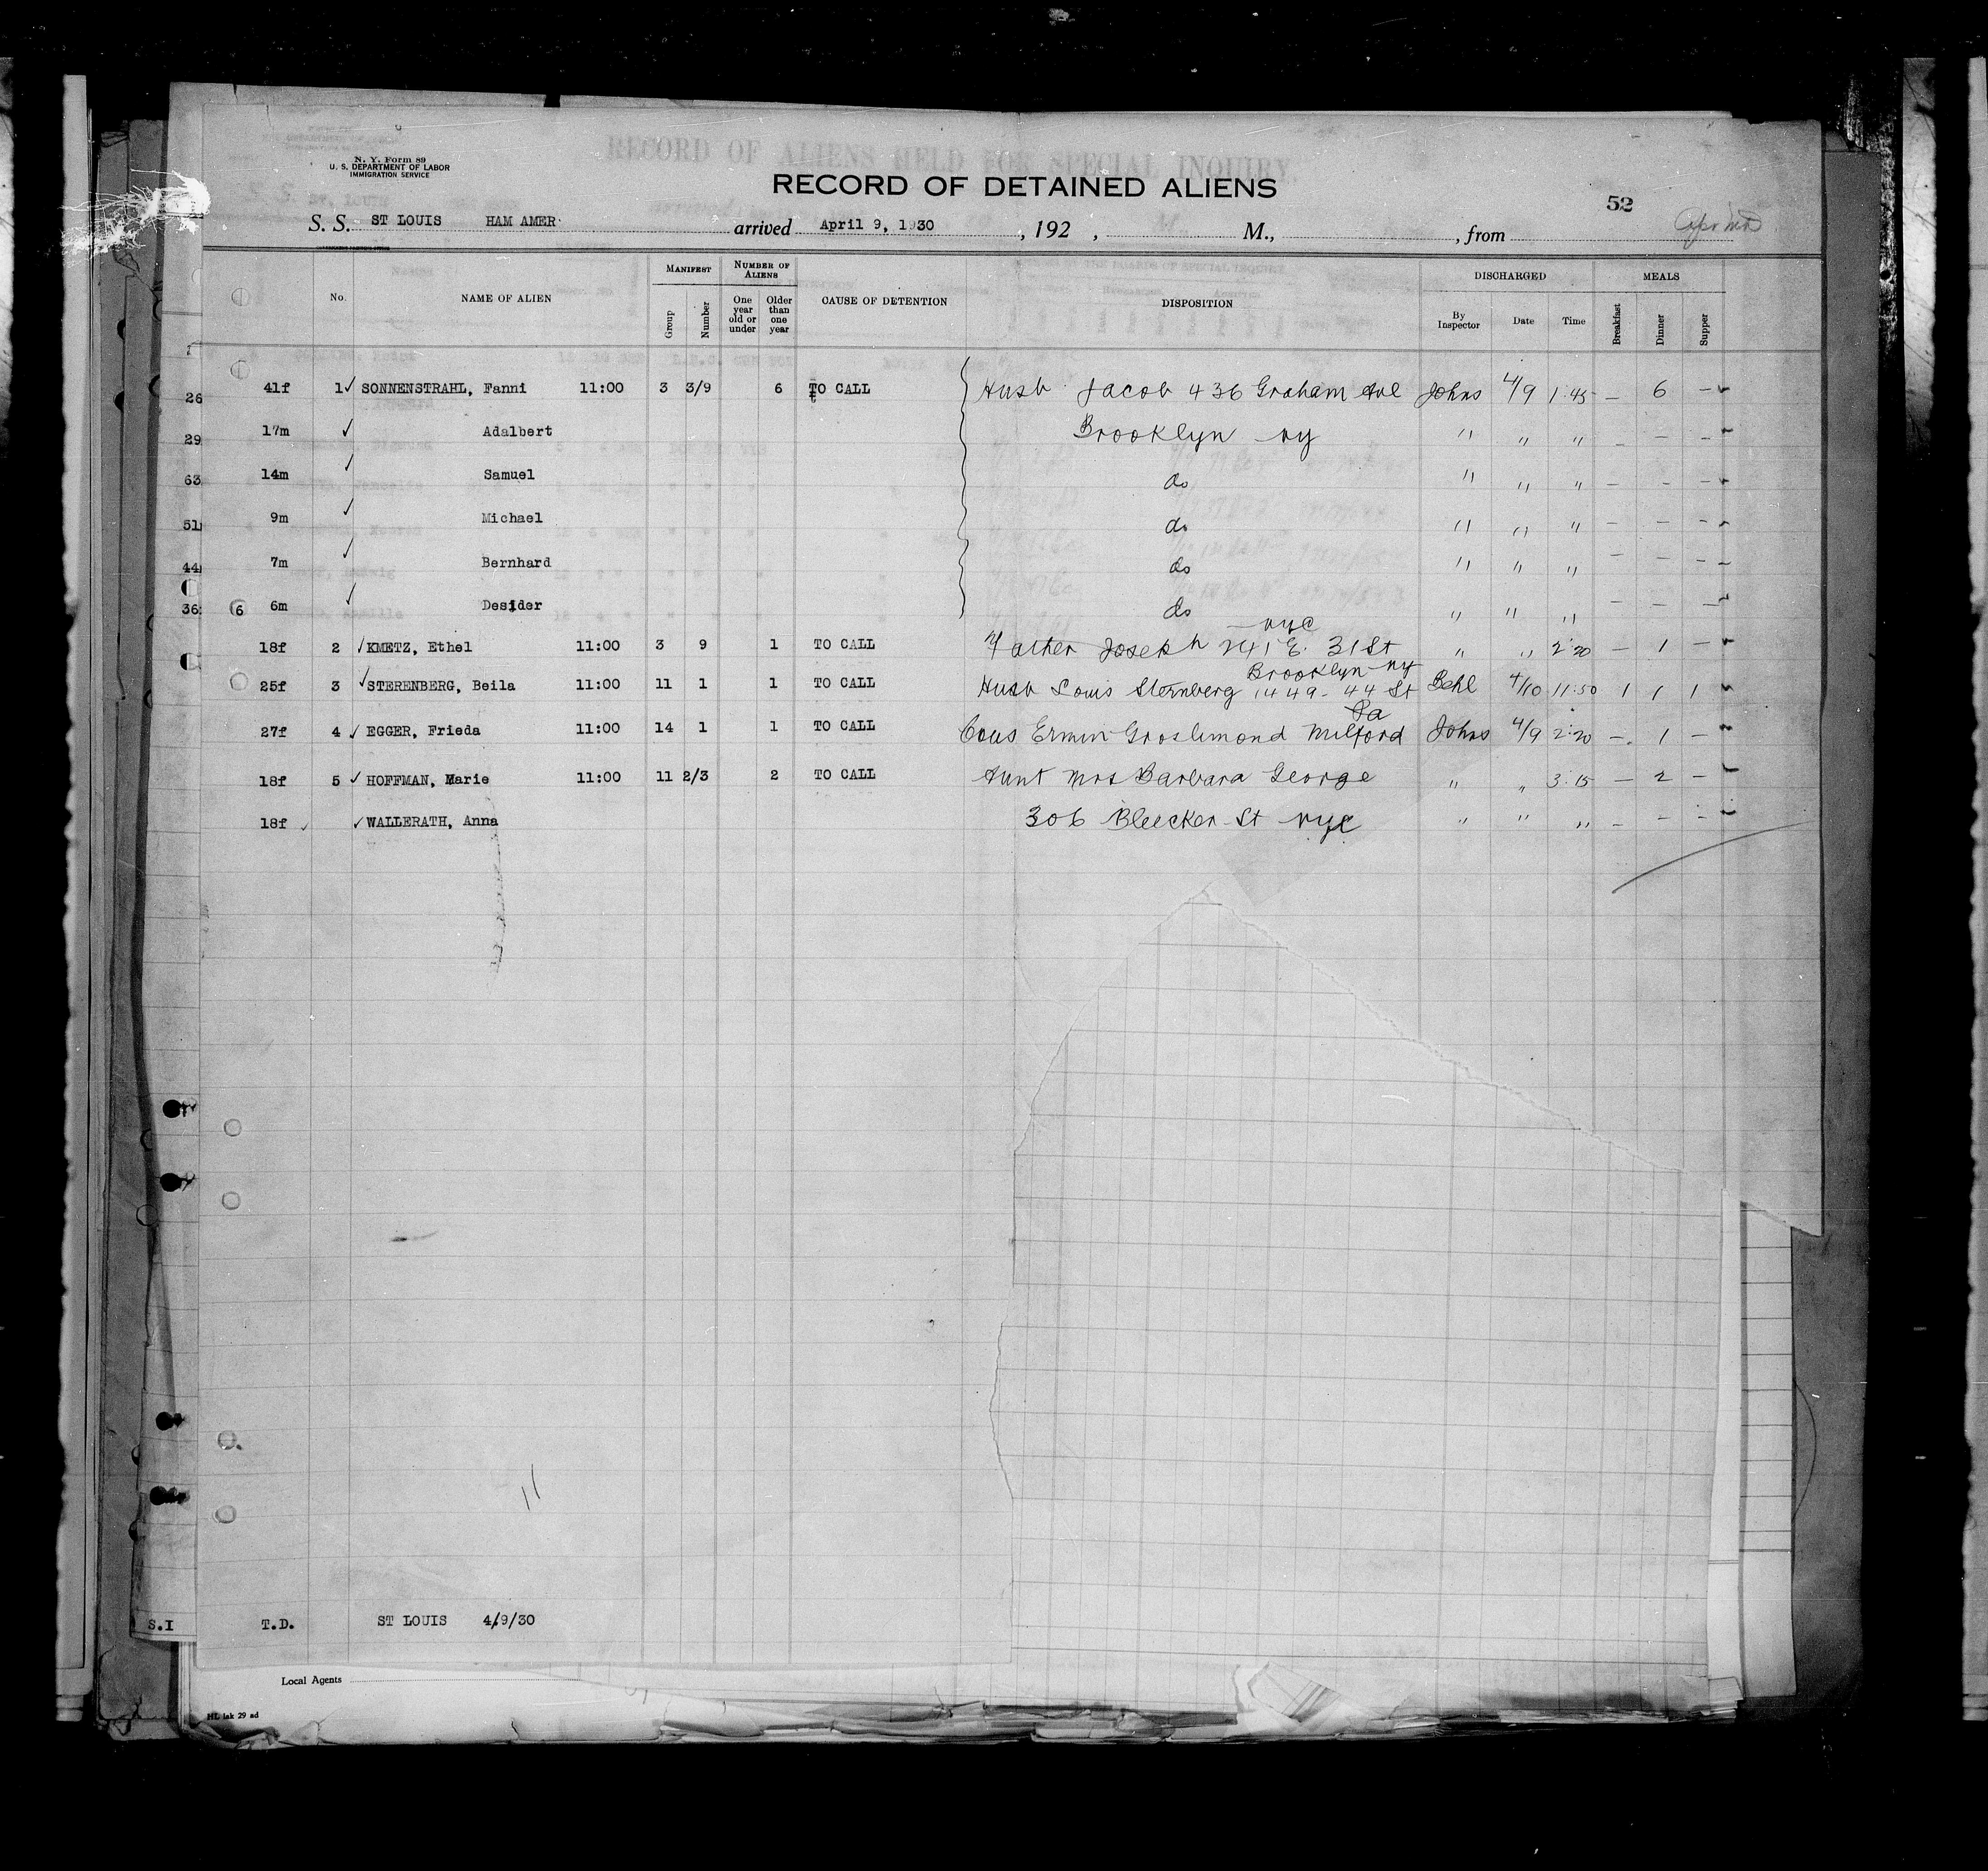 N. Y. Form 89
U. S. DEPARTMENT OF LABOR
IMMIGRATION SERVICE
RECORD OF ALIENS HELD FOR SPECIAL INQUIRY.
RECORD OF DETAINED ALIENS
52
S. S. ST LOUIS HAM AMER arrived April 9, 1930 , 192 , M., , from
MANIFEST NUMBER OF ALIENS DISCHARGED MEALS
No. NAME OF ALIEN Group Number One year old or under Older than one year CAUSE OF DETENTION DISPOSITION By Inspector Date Time Breakfast Dinner Supper
26 41f 1 ✓ SONNENSTRAHL, Fanni 11:00 3 3/9 6 TO CALL Husb Jacob 436 Graham Ave Johns 4/9 1:45 — 6 —
29 17m ✓ Adalbert Brooklyn ny " " " — — —
63 14m ✓ Samuel do " " " — — —
51 9m ✓ Michael do " " " — — —
44 7m ✓ Bernhard do " " " — — —
36 6 6m ✓ Desider do " " " — — —
nyc
18f 2 ✓ KMETZ, Ethel 11:00 3 9 1 TO CALL Father Joseph 241 E. 31 St " " 2:20 — 1 —
Brooklyn ny
25f 3 ✓ STERENBERG, Beila 11:00 11 1 1 TO CALL Husb Louis Sternberg 1449-44 St Behl 4/10 11:50 1 1 1
Pa
27f 4 ✓ EGGER, Frieda 11:00 14 1 1 TO CALL Cous Ermin Groslimond Milford Johns 4/9 2:20 — 1 —
18f 5 ✓ HOFFMAN, Marie 11:00 11 2/3 2 TO CALL Aunt Mrs Barbara George " " 3:15 — 2 —
18f ✓ ✓ WALLERATH, Anna 306 Bleecker St nyc " " " — — —
11
S.I T.D. ST LOUIS 4/9/30
Local Agents